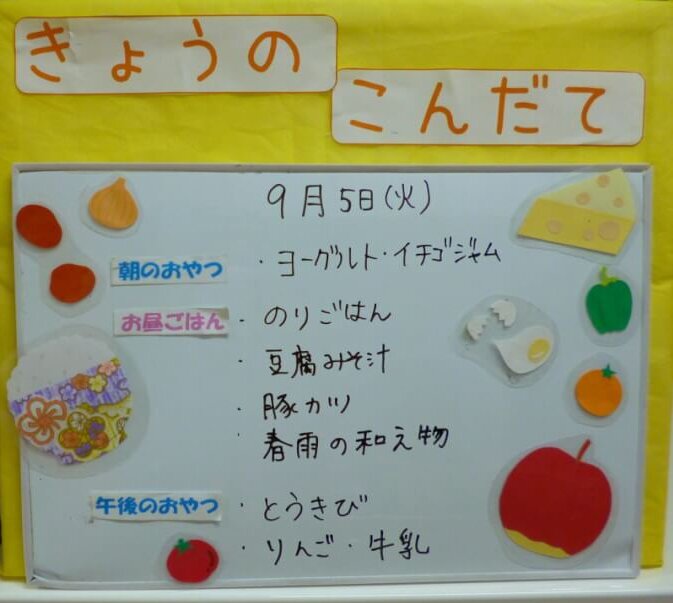 きょうの
こんだて
9月5日(火)
朝のおやつ ・ヨーグルト・イチゴジャム
お昼ごはん ・のりごはん
・豆腐みそ汁
・豚カツ
・春雨の和え物
午後のおやつ ・とうきび
・りんご・牛乳